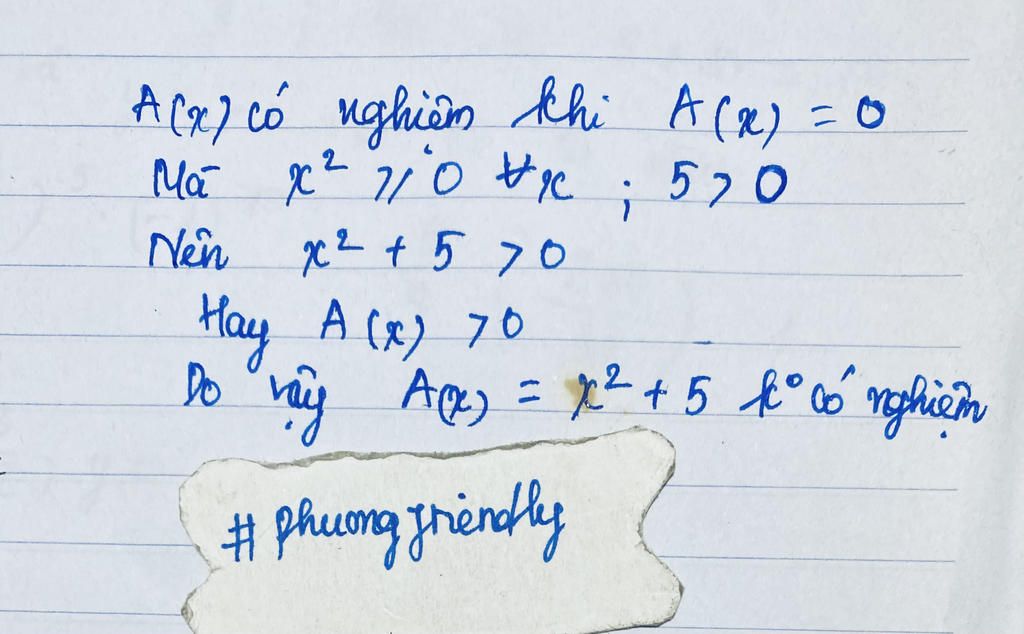 A(x) có nghiệm khi A(x) = 0
Mà x² ≥ 0 ∀x ; 5 > 0
Nên x² + 5 > 0
Hay A(x) > 0
Do vậy A(x) = x² + 5 k° có nghiệm
# phuongfriendly